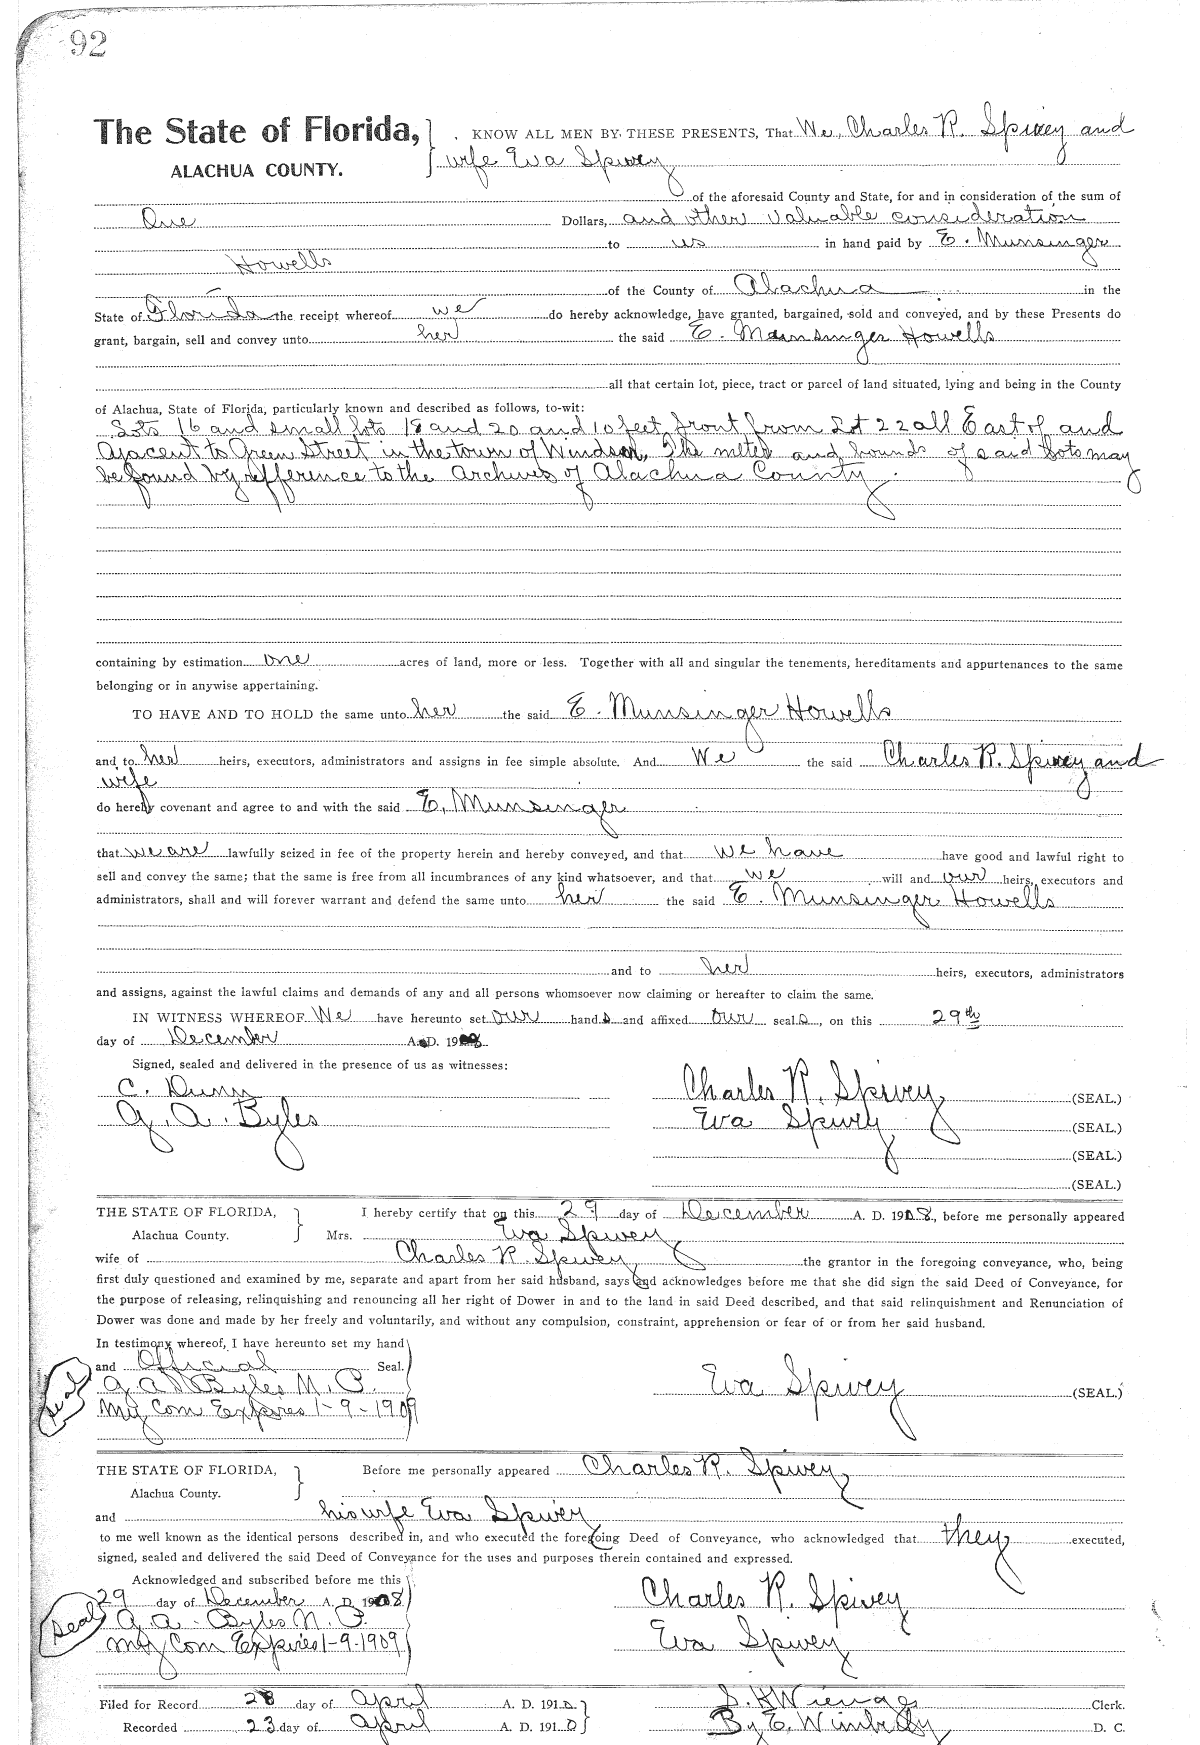 92
The State of Florida, KNOW ALL MEN BY THESE PRESENTS, That We, Charles R. Spivey and
ALACHUA COUNTY. wife Eva Spivey
of the aforesaid County and State, for and in consideration of the sum of
One Dollars, and other valuable consideration
to us in hand paid by E. Munsinger
Howells
of the County of Alachua in the
State of Florida the receipt whereof we do hereby acknowledge, have granted, bargained, sold and conveyed, and by these Presents do
grant, bargain, sell and convey unto her the said E. Munsinger Howells
all that certain lot, piece, tract or parcel of land situated, lying and being in the County
of Alachua, State of Florida, particularly known and described as follows, to-wit:
Lots 16 and small lots 18 and 20 and 10 feet front from Lot 22 all East of and
Ajacent to Green Street in the town of Windsor, The metes and bounds of said Lots may
be found by refference to the Archives of Alachua County.
containing by estimation one acres of land, more or less. Together with all and singular the tenements, hereditaments and appurtenances to the same
belonging or in anywise appertaining.
TO HAVE AND TO HOLD the same unto her the said E. Munsinger Howells
and to her heirs, executors, administrators and assigns in fee simple absolute. And We the said Charles R. Spivey and
wife
do hereby covenant and agree to and with the said E. Munsinger
that we are lawfully seized in fee of the property herein and hereby conveyed, and that we have have good and lawful right to
sell and convey the same; that the same is free from all incumbrances of any kind whatsoever, and that we will and our heirs, executors and
administrators, shall and will forever warrant and defend the same unto her the said E. Munsinger Howells
and to her heirs, executors, administrators
and assigns, against the lawful claims and demands of any and all persons whomsoever now claiming or hereafter to claim the same.
IN WITNESS WHEREOF We have hereunto set our hands and affixed our seals, on this 29th
day of December A. D. 1908
Signed, sealed and delivered in the presence of us as witnesses:
C. Dunn Charles R. Spivey (SEAL.)
G. A. Byles Eva Spivey (SEAL.)
(SEAL.)
(SEAL.)
THE STATE OF FLORIDA, I hereby certify that on this 29 day of December A. D. 1908, before me personally appeared
Alachua County. Mrs. Eva Spivey
wife of Charles R. Spivey the grantor in the foregoing conveyance, who, being
first duly questioned and examined by me, separate and apart from her said husband, says and acknowledges before me that she did sign the said Deed of Conveyance, for
the purpose of releasing, relinquishing and renouncing all her right of Dower in and to the land in said Deed described, and that said relinquishment and Renunciation of
Dower was done and made by her freely and voluntarily, and without any compulsion, constraint, apprehension or fear of or from her said husband.
In testimony whereof, I have hereunto set my hand
and Official Seal.
Seal G A Byles N. P. Eva Spivey (SEAL.)
My Com Expires 1-9-1909
THE STATE OF FLORIDA, Before me personally appeared Charles R. Spivey
Alachua County.
and his wife Eva Spivey
to me well known as the identical persons described in, and who executed the foregoing Deed of Conveyance, who acknowledged that they executed,
signed, sealed and delivered the said Deed of Conveyance for the uses and purposes therein contained and expressed.
Acknowledged and subscribed before me this
29 day of December A. D. 1908 Charles R. Spivey
Seal G. A. Byles N. P.
My Com Expires 1-9-1909 Eva Spivey
Filed for Record 28 day of April A. D. 1910 S. H. Wienges Clerk.
Recorded 23 day of April A. D. 1910 By E. Wimberly D. C.